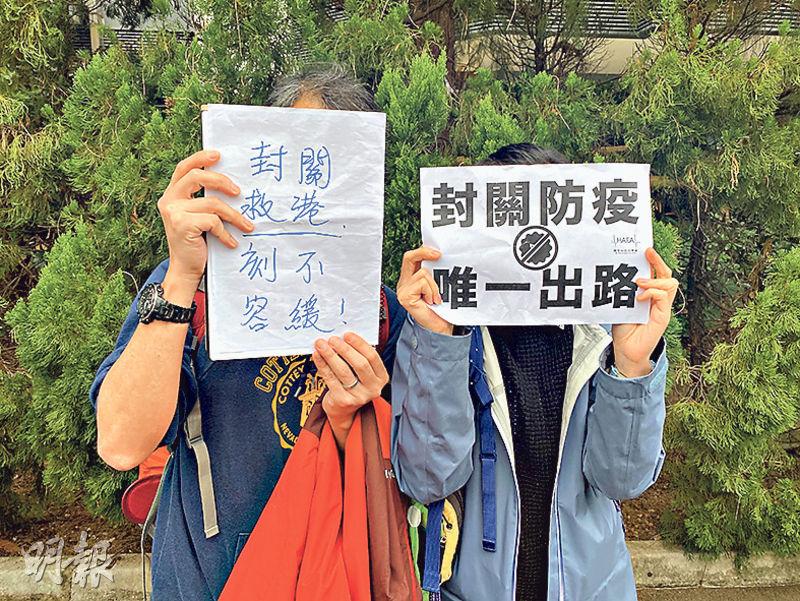 封關
救港
刻不
容緩!
封關防疫
HAEA
唯一出路
COTTEY
NEVADA
明報